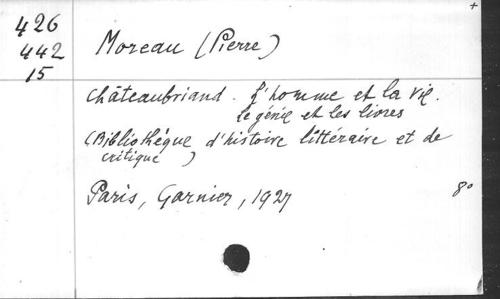 +
426
442
15
Moreau (Pierre)
Châteaubriand. L'homme et la vie.
Le génie et les livres
(Bibliothèque d'histoire littéraire et de
critique )
Paris, Garnier, 1927 8°